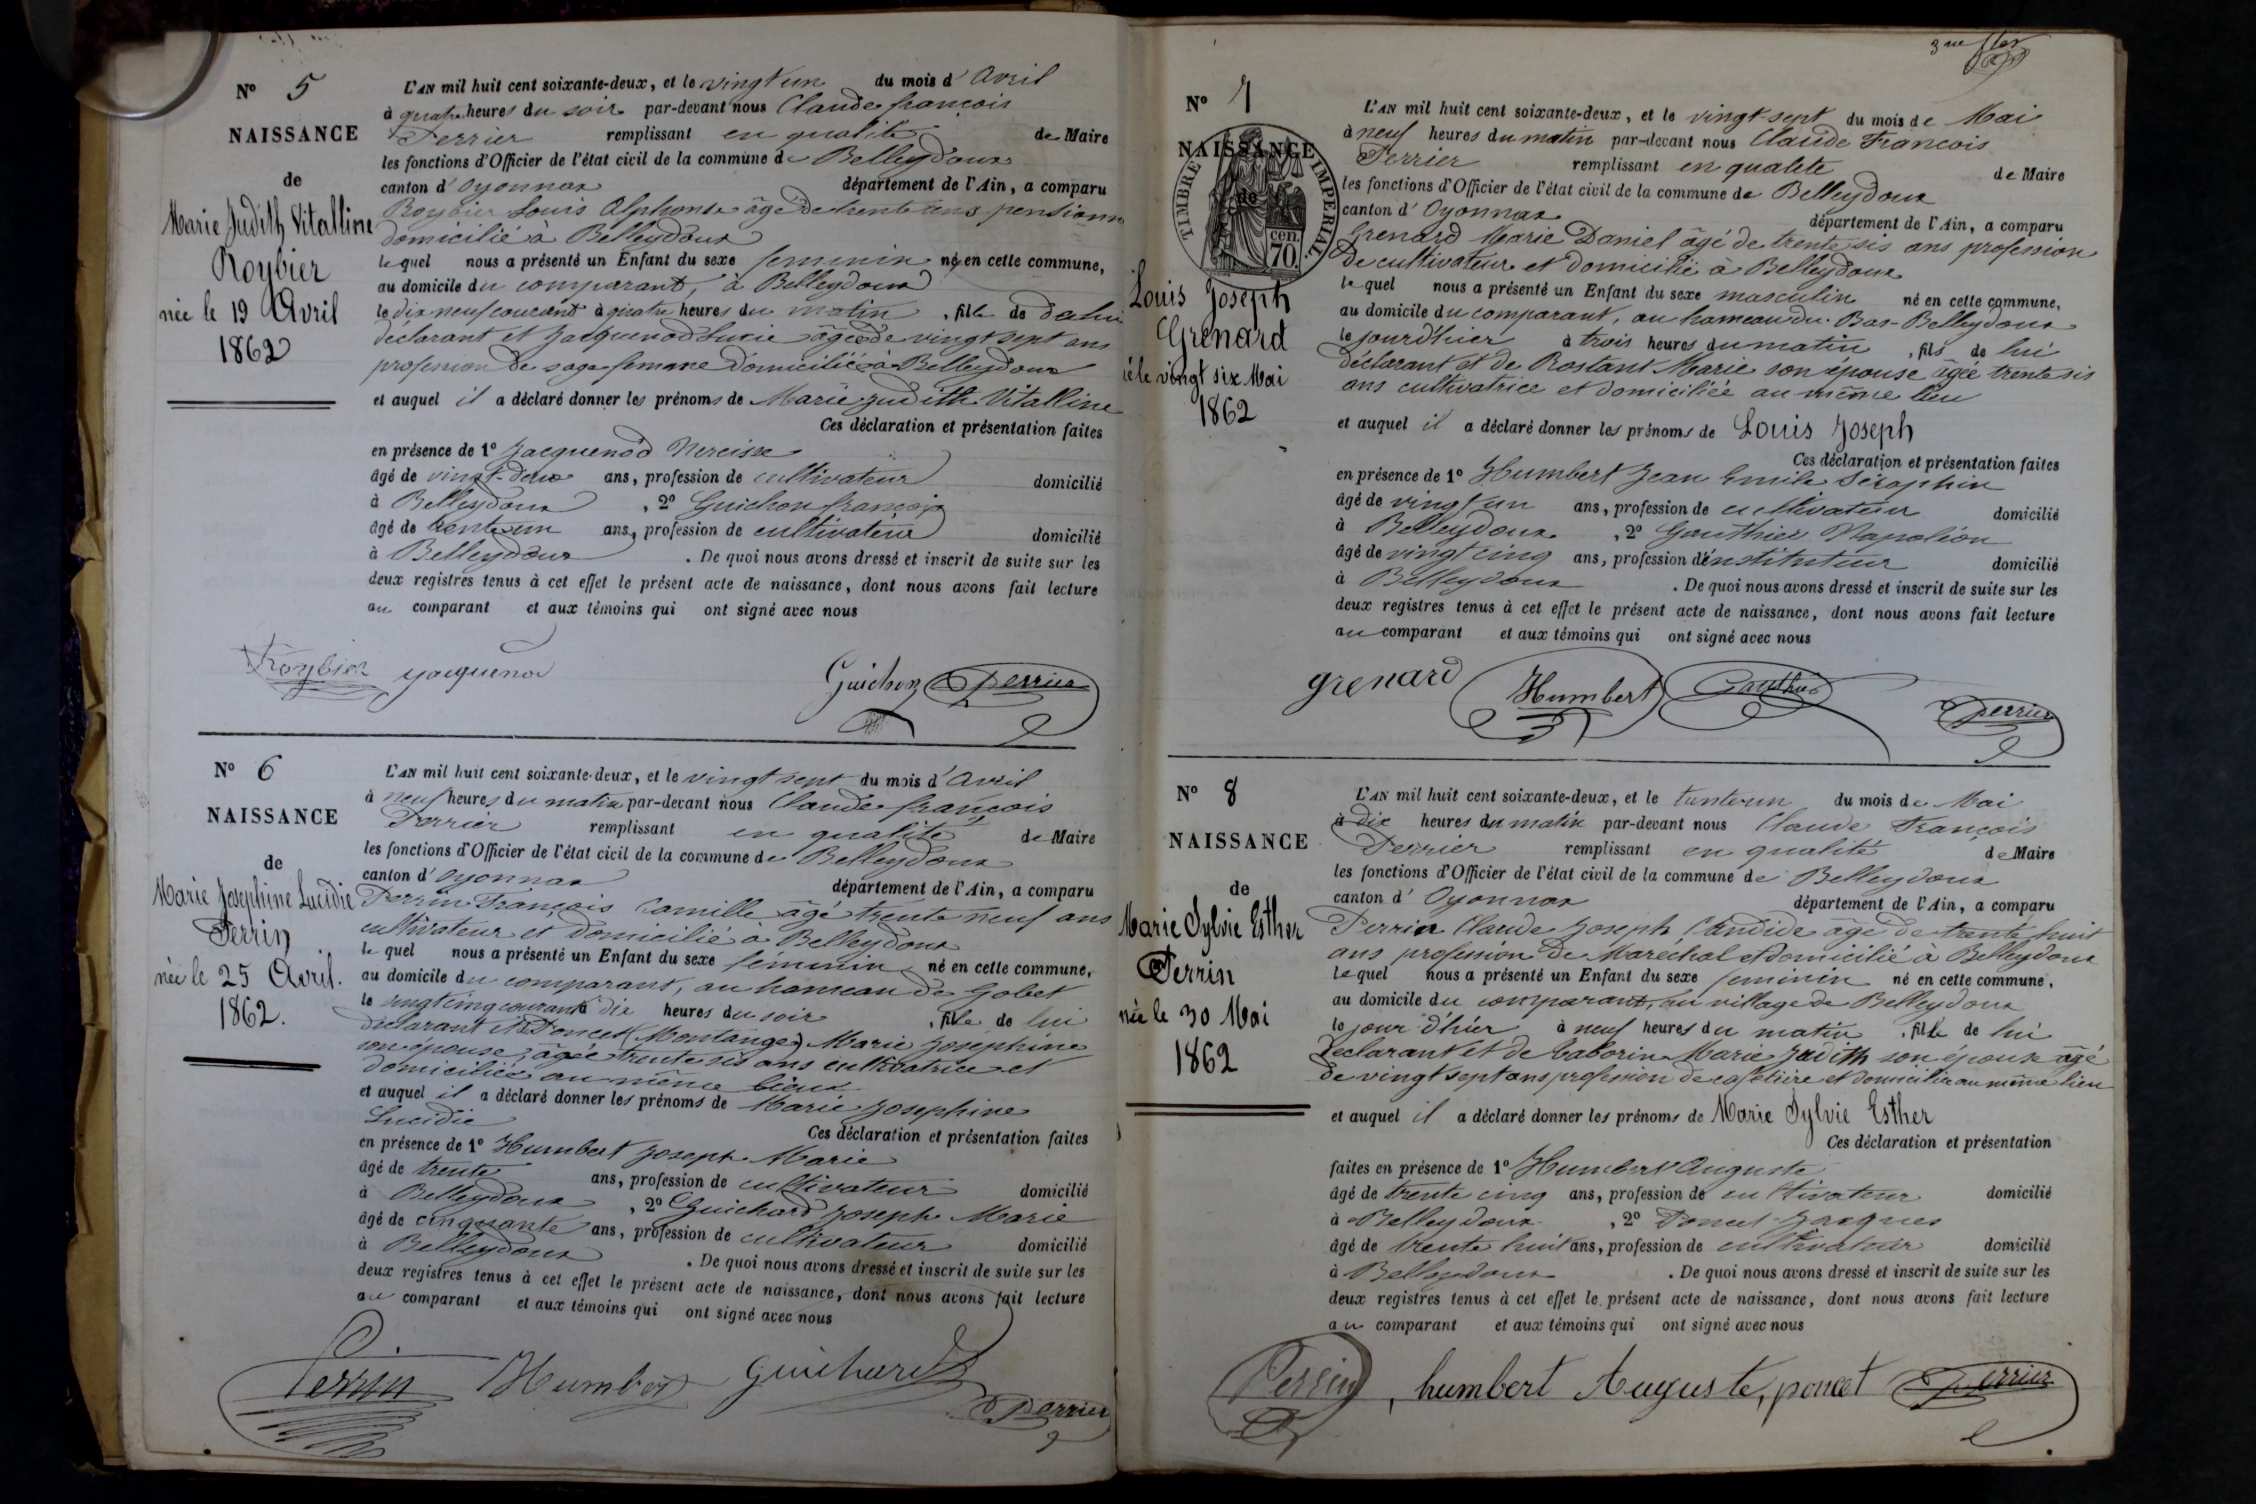 N° 5
NAISSANCE
de
Marie Judith Vitalline
Roybier
née le 19 Avril
1862
L'AN mil huit cent soixante-deux, et le vingt un du mois d'Avril
à quatre heures du soir par-devant nous Claude françois
Perrier remplissant en qualité de Maire
les fonctions d'Officier de l'état civil de la commune de Belleydoux
canton d'Oyonnax département de l'Ain, a comparu
Roybier Louis Alphonse âgé de trente ans pensionné
domicilié à Belleydoux
lequel nous a présenté un Enfant du sexe feminin né en cette commune,
au domicile du comparant, à Belleydoux
le dix neuf courant à quatre heures du matin, fille de
déclarant et Jacquenod Lucie âgée de vingt sept ans
profession de sage femme domiciliée à Belleydoux
et auquel il a déclaré donner les prénoms de Marie Judith Vitalline
Ces déclaration et présentation faites
en présence de 1° Jacquenod Nercisse
âgé de vingt-deux ans, profession de cultivateur domicilié
à Belleydoux, 2° Guichon françois
âgé de trente un ans, profession de cultivateur domicilié
à Belleydoux. De quoi nous avons dressé et inscrit de suite sur les
deux registres tenus à cet effet le présent acte de naissance, dont nous avons fait lecture
au comparant et aux témoins qui ont signé avec nous
Roybier Jacquenod Guichon Perrier
N° 6
NAISSANCE
de
Marie Josephine Lucidie
Perrin
née le 25 Avril.
1862.
L'AN mil huit cent soixante-deux, et le vingt sept du mois d'Avril
à neuf heures du matin par-devant nous Claude françois
Perrier remplissant en qualité de Maire
les fonctions d'Officier de l'état civil de la commune de Belleydoux
canton d'Oyonnax département de l'Ain, a comparu
Perrin François Camille âgé trente neuf ans
cultivateur et domicilié à Belleydoux
lequel nous a présenté un Enfant du sexe féminin né en cette commune,
au domicile du comparant, au hameau de Gobet
le vingt cinq courant à dix heures du soir, fille de lui
déclarant et Poncet (Montange) Marie Josephine
son épouse, âgée trente six ans cultivatrice et
domiciliée au même lieux
et auquel il a déclaré donner les prénoms de Marie Josephine
Lucidie
Ces déclaration et présentation faites
en présence de 1° Humbert Joseph Marie
âgé de trente ans, profession de cultivateur domicilié
à Belleydoux, 2° Guichard Joseph Marie
âgé de cinquante ans, profession de cultivateur domicilié
à Belleydoux. De quoi nous avons dressé et inscrit de suite sur les
deux registres tenus à cet effet le présent acte de naissance, dont nous avons fait lecture
au comparant et aux témoins qui ont signé avec nous
Perrin Humbert Guichard Perrier
3me
N° 7
NAISSANCE
de
TIMBRE IMPERIAL
70 cen.
Louis Joseph
Grenard
né le vingt six Mai
1862
L'AN mil huit cent soixante-deux, et le vingt-sept du mois de Mai
à neuf heures du matin par-devant nous Claude François
Perrier remplissant en qualité de Maire
les fonctions d'Officier de l'état civil de la commune de Belleydoux
canton d'Oyonnax département de l'Ain, a comparu
Grenard Marie Daniel âgé de trente six ans profession
de cultivateur et domicilié à Belleydoux
lequel nous a présenté un Enfant du sexe masculin né en cette commune,
au domicile du comparant, au hameau du Bas-Belleydoux
le jour d'hier à trois heures du matin, fils de lui
déclarant et de Rostant Marie son épouse âgée trente six
ans cultivatrice et domiciliée au même lieu
et auquel il a déclaré donner les prénoms de Louis Joseph
Ces déclaration et présentation faites
en présence de 1° Humbert Jean Emile Séraphin
âgé de vingt un ans, profession de cultivateur domicilié
à Belleydoux, 2° Gauthier Napoléon
âgé de vingt cinq ans, profession d'instituteur domicilié
à Belleydoux. De quoi nous avons dressé et inscrit de suite sur les
deux registres tenus à cet effet le présent acte de naissance, dont nous avons fait lecture
au comparant et aux témoins qui ont signé avec nous
grenard Humbert Gauthier Perrier
N° 8
NAISSANCE
de
Marie Sylvie Esther
Perrin
née le 30 Mai
1862
L'AN mil huit cent soixante-deux, et le trente un du mois de Mai
à dix heures du matin par-devant nous Claude François
Perrier remplissant en qualité de Maire
les fonctions d'Officier de l'état civil de la commune de Belleydoux
canton d'Oyonnax département de l'Ain, a comparu
Perrin Claude Joseph Candide âgé de trente huit
ans profession de Maréchal et domicilié à Belleydoux
lequel nous a présenté un Enfant du sexe feminin né en cette commune,
au domicile du comparant, au village de Belleydoux
le jour d'hier à neuf heures du matin, fille de lui
déclarant et de Taborin Marie Judith son épouse âgé
de vingt sept ans profession de cafetiére et domicilié au même lieu
et auquel il a déclaré donner les prénoms de Marie Sylvie Esther
Ces déclaration et présentation
faites en présence de 1° Humbert Auguste
âgé de trente cinq ans, profession de cultivateur domicilié
à Belleydoux, 2° Poncet Jacques
âgé de trente huit ans, profession de cultivateur domicilié
à Belleydoux. De quoi nous avons dressé et inscrit de suite sur les
deux registres tenus à cet effet le présent acte de naissance, dont nous avons fait lecture
au comparant et aux témoins qui ont signé avec nous
Perrin, humbert Auguste, poncet Perrier